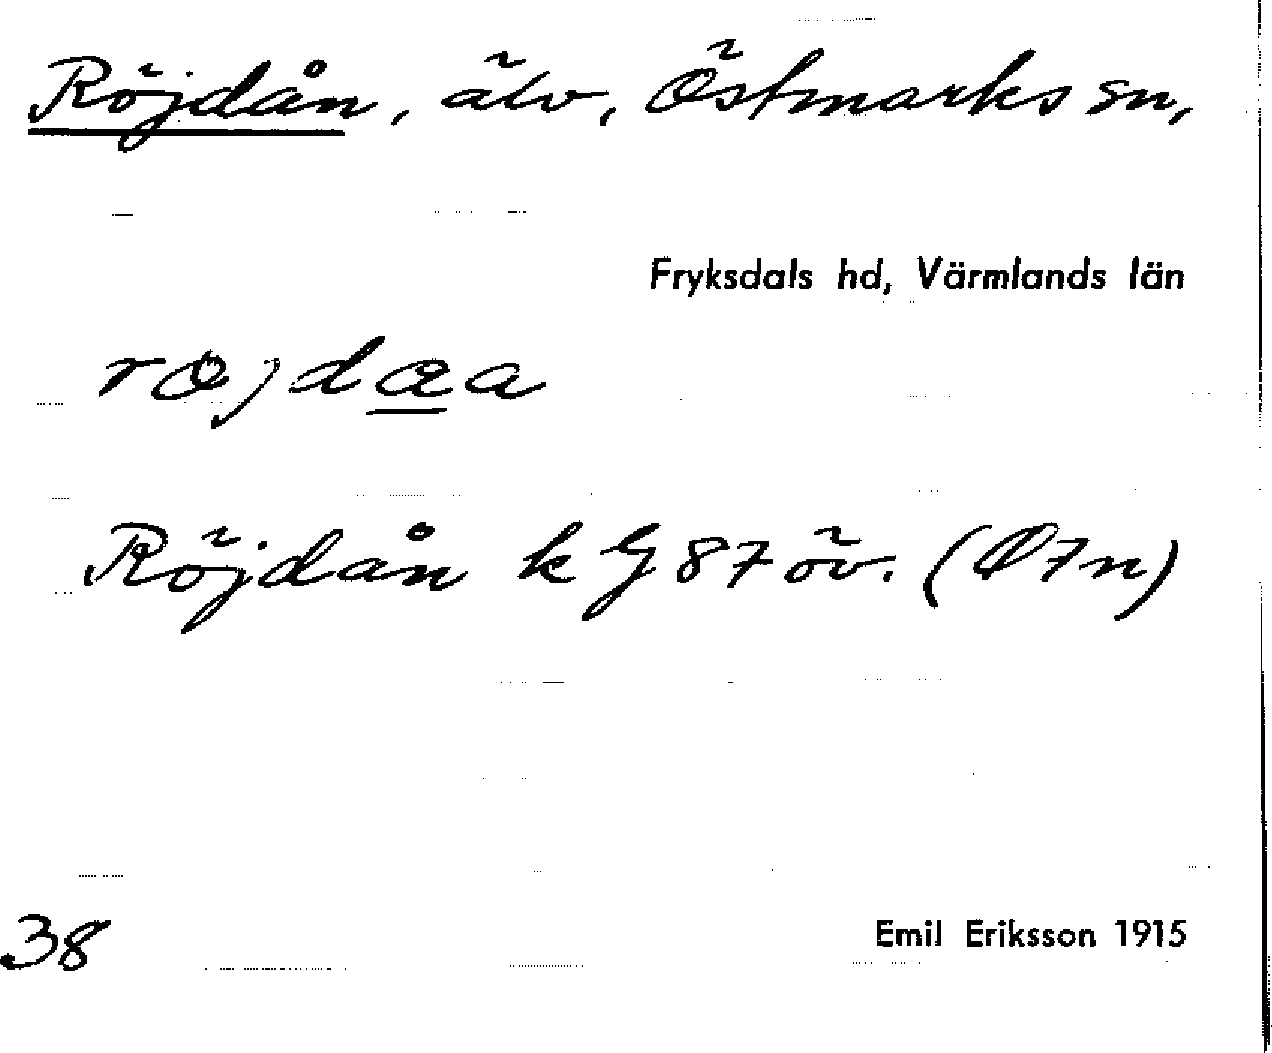 Röjdån, älv, Östmarks sn,
Fryksdals hd, Värmlands län
Röjdån k G 87 öv. (Ø7n)
38
Emil Eriksson 1915